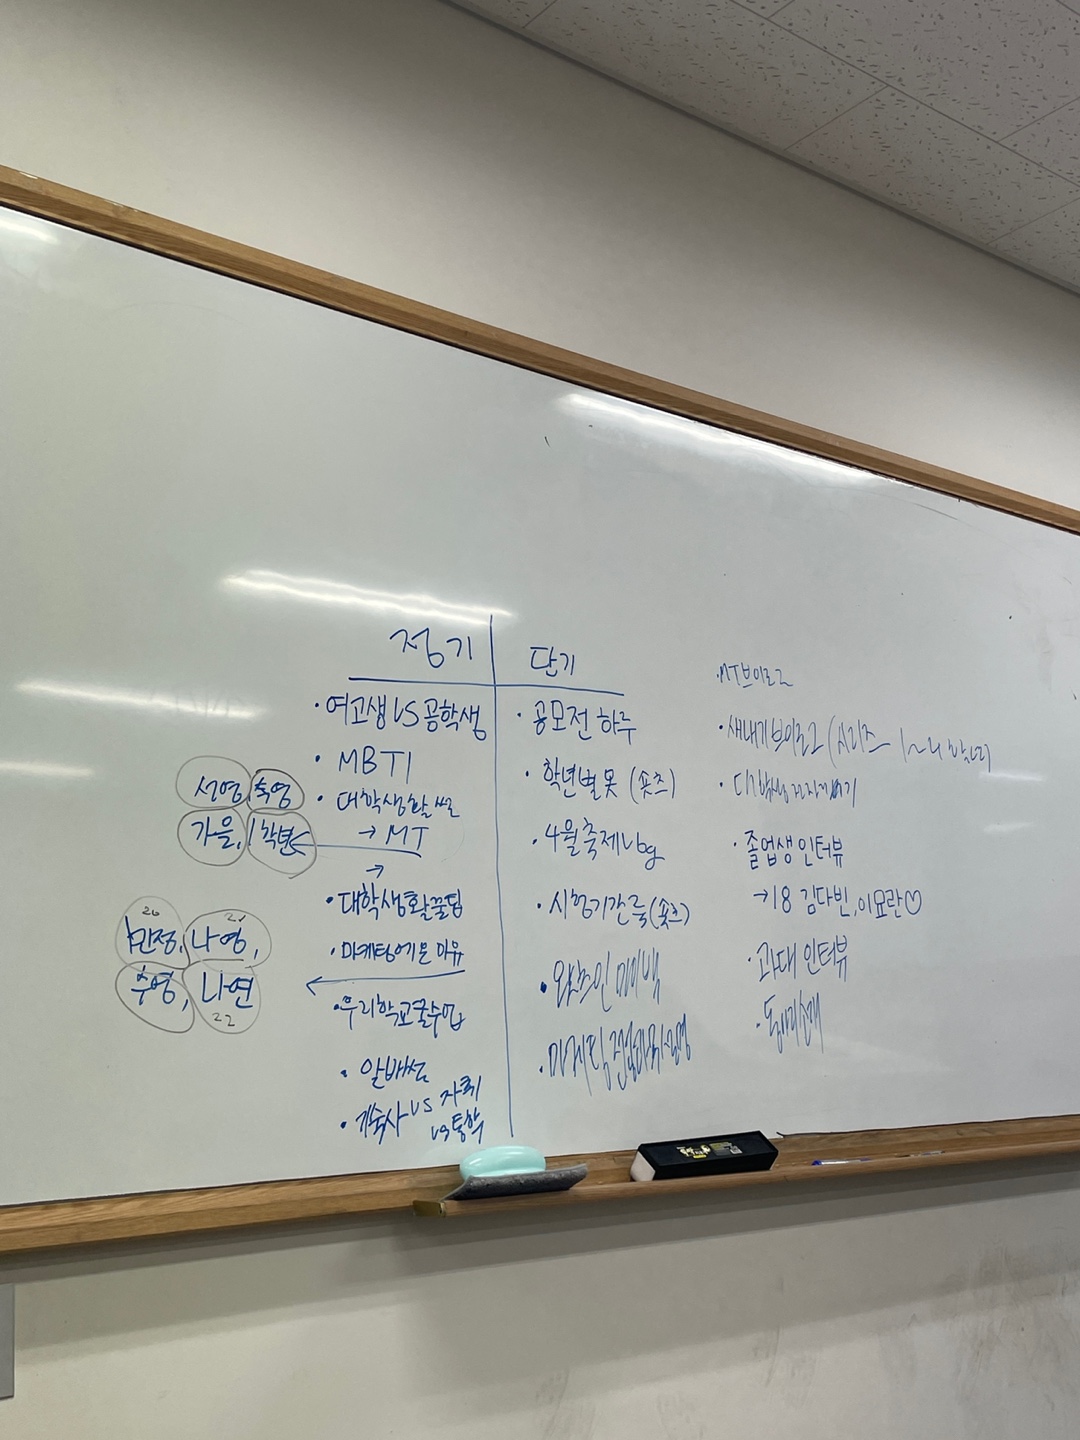 정기
· 여고생 VS 공학생
· MBTI
· 대학생활 썰
→ MT
→
· 대학생활꿀팁
· 마케팅에 온 이유
· 우리학교꿀수업
· 알배썰
· 기숙사 vs 자취
vs 통학
서영, 축영
가을, 1학년
20 21
민정, 나영,
수영, 나연
22
단기
· 공모전 하루
· 학년별 룩 (숏츠)
· 4월 축제 Vlog
· 시험기간 룩 (숏츠)
· 왓츠인마이백
· MT브이로그
· 새내기 브이로그 (시리즈
· 졸업생 인터뷰
→ 18 김다빈, 이요란♡
· 과대 인터뷰
· 동아리소개